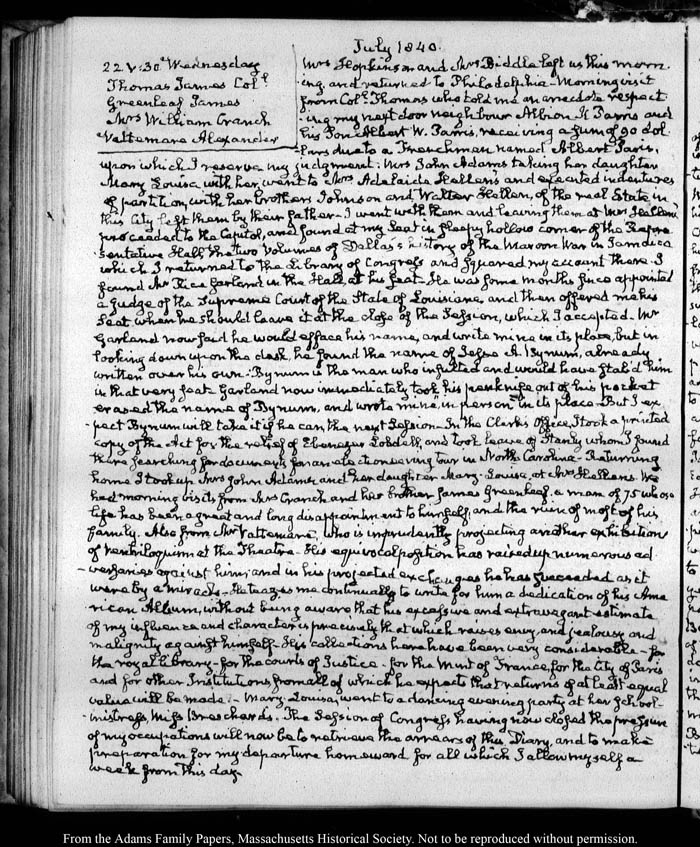 July 1840.
22 V:30. Wednesday
Thomas James ColL
Greenleaf James
Mrs William Cranch
Vattemare Alexander
Mrs Hopkinson and Mrs Biddle left us this morn-
ing and returned to Philadelphia – Morning visit
from Coll Thomas who told me an anecdote respect-
ing my next door neighbour Albion K Parris and
his Son Albert W. Parris, receiving a sum of 90 dol-
lars due to a Frenchman named Albert Paris,
upon which I reserve my judgment. Mrs John Adams taking her daughter
Mary Louisa with her, went to Mrs Adelaide Hellen's and executed indentures
of partition, with her brothers Johnson and Walter Hellen, of the real Estate in
this City left them by their father – I went with them and leaving them at Mrs Hellen's
proceeded to the Capitol, and found at my Seat in sleepy hollow corner of the Repre-
sentative Hall, the two Volumes of Dallas's history of the Maroon War in Jamaica
which I returned to the Library of Congress and squared my account there. I
found Mr Rice Garland in the Hall, at his seat – He was some months since appointed
a Judge of the Supreme Court of the State of Louisiana, and then offered me his
Seat when he should leave it at the close of the Session, which I accepted. Mr
Garland now said he would efface his name, and write mine in its place, but in
looking down upon the desk, he found the name of Jesse A. Bynum, already
written over his own. Bynum is the man who insulted and would have stab'd him
in that very seat. Garland now immediately took his penknife out of his pocket
erased the name of Bynum, and wrote mine "in person" in its place. But I ex-
pect Bynum will take it if he can the next Session – In the Clerk's Office I took a printed
copy of the Act for the relief of Ebenezer Lobdell, and took leave of Stanly whom I found
there searching for documents for an electioneering tour in North Carolina – Returning
home I took up Mrs John Adams and her daughter Mary-Louisa, at Mrs Hellen's. We
had morning visits from Mrs Cranch and her brother James Greenleaf, a man of 75 whose
life has been a great and long disappointment to himself, and the ruin of most of his
family. Also from Mr Vattemare, who is imprudently projecting another exhibition
of Ventriloquism at the Theatre – His equivocal position has raised up numerous ad-
versaries against him; and in his projected exchanges he has succeeded as it
were by a miracle – He teazes me continually to write for him a dedication of his Ame-
rican Album, without being aware that his excessive and extravagant estimate
of my influence and character is precisely that which raises envy, and jealousy and
malignity against himself – His collections here have been very considerable – for
the royal library – for the courts of Justice – for the Mint of France, for the City of Paris
and for other Institutions, from all of which he expects that returns of at least equal
value will be made. – Mary Louisa, went to a dancing evening party at her School-
mistress, Miss Breschard's. The Session of Congress having now closed the pressure
of my occupations will now be to retrieve the arrears of this Diary, and to make
preparation for my departure homeward for all which I allow myself a
week from this day
From the Adams Family Papers, Massachusetts Historical Society. Not to be reproduced without permission.